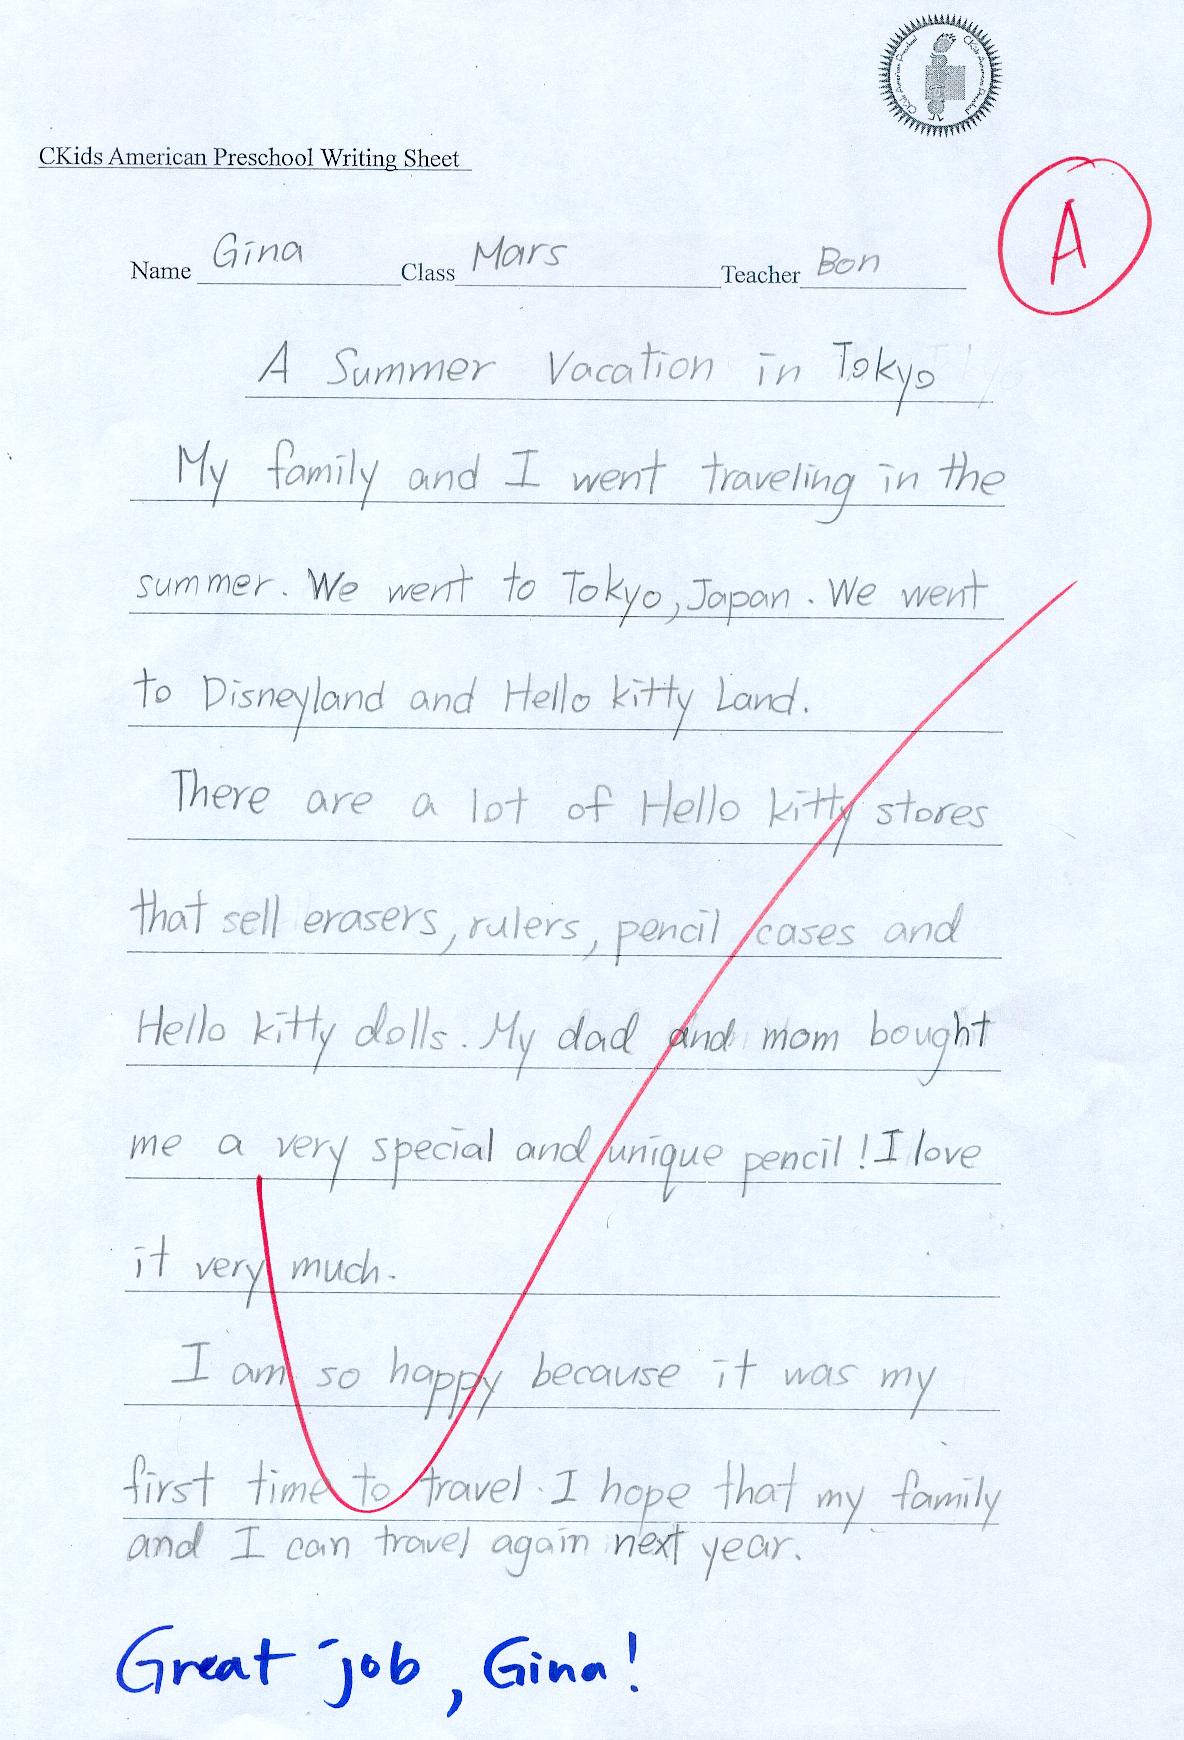 CKids American Preschool
CKids American Preschool
CKids American Preschool Writing Sheet
A
Name Gina Class Mars Teacher Bon
A Summer Vacation in Tokyo
My family and I went traveling in the
summer. We went to Tokyo, Japan. We went
to Disneyland and Hello kitty Land.
There are a lot of Hello kitty stores
that sell erasers, rulers, pencil cases and
Hello kitty dolls. My dad and mom bought
me a very special and unique pencil! I love
it very much.
I am so happy because it was my
first time to travel. I hope that my family
and I can travel again next year.
Great job, Gina!